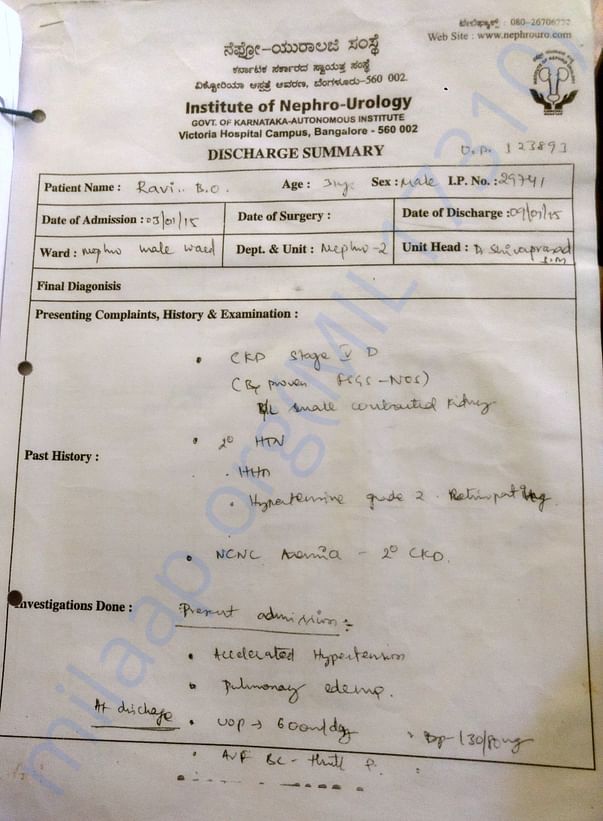 ದೂರವಾಣಿ : 080-26706777
Web Site : www.nephrouro.com
ನೆಫ್ರೋ-ಯುರಾಲಜಿ ಸಂಸ್ಥೆ
ಕರ್ನಾಟಕ ಸರ್ಕಾರದ ಸ್ವಾಯತ್ತ ಸಂಸ್ಥೆ
ವಿಕ್ಟೋರಿಯಾ ಆಸ್ಪತ್ರೆ ಆವರಣ, ಬೆಂಗಳೂರು-560 002.
Institute of Nephro-Urology
GOVT. OF KARNATAKA-AUTONOMOUS INSTITUTE
Victoria Hospital Campus, Bangalore - 560 002
DISCHARGE SUMMARY
O.P. 123893
Patient Name : Ravi.. B.O. Age : 31yr Sex : Male I.P. No. : 29741
Date of Admission : 03/01/15 Date of Surgery : Date of Discharge : 09/01/15
Ward : Nephro male ward Dept. & Unit : Nephro-2 Unit Head : Dr Shivaprasad
S.M
Final Diagonisis
Presenting Complaints, History & Examination :
• CKD Stage V D
(Bx proven FSGS-NOS)
B/L small contracted kidney
• 2° HTN
Past History :
• HHD
• Hypertensive grade 2 Retinopathy
• NCNC Anemia - 2° CKD.
Investigations Done : Present admission :-
• Accelerated Hypertension
• Pulmonary edema.
At discharge • UOP → 600ml/day • Bp-130/80mmg
• AVF BC - thrill P.
milaap.org(MIL173107